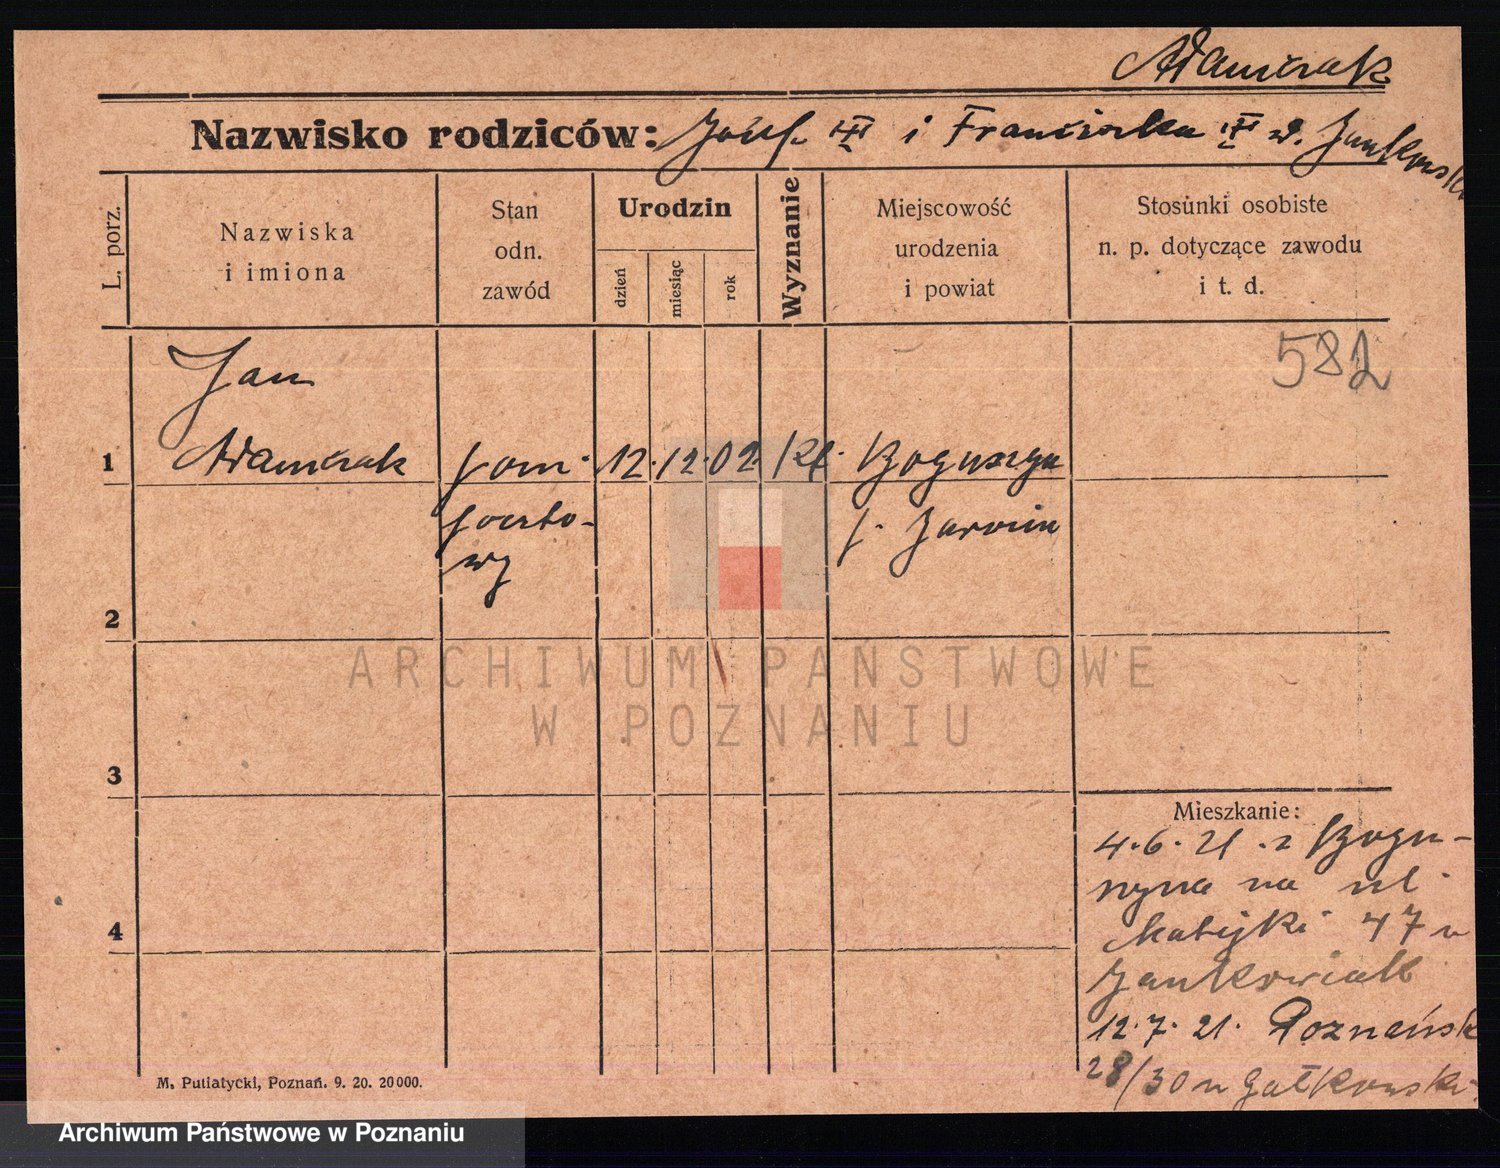 Adamczak
Nazwisko rodziców: Józef i Franciszka Jankowska
L. porz.
Nazwiska
i imiona
Stan
odn.
zawód
Urodzin
dzień
miesiąc
rok
Wyznanie
Miejscowość
urodzenia
i powiat
Stosunki osobiste
n. p. dotyczące zawodu
i t. d.
582
Jan
1 Adamczak pom. 12. 12. 02.
poczto-
wy
p. Jarocin
2
3
4
Mieszkanie:
4.6.21. z Bogu-
na ul.
Matejki 47 u
Jankowiak
12.7.21. Poznańsk
28/30 u Gałkowski
M. Putiatycki, Poznań. 9. 20. 20000.
ARCHIWUM PAŃSTWOWE
W POZNANIU
Archiwum Państwowe w Poznaniu